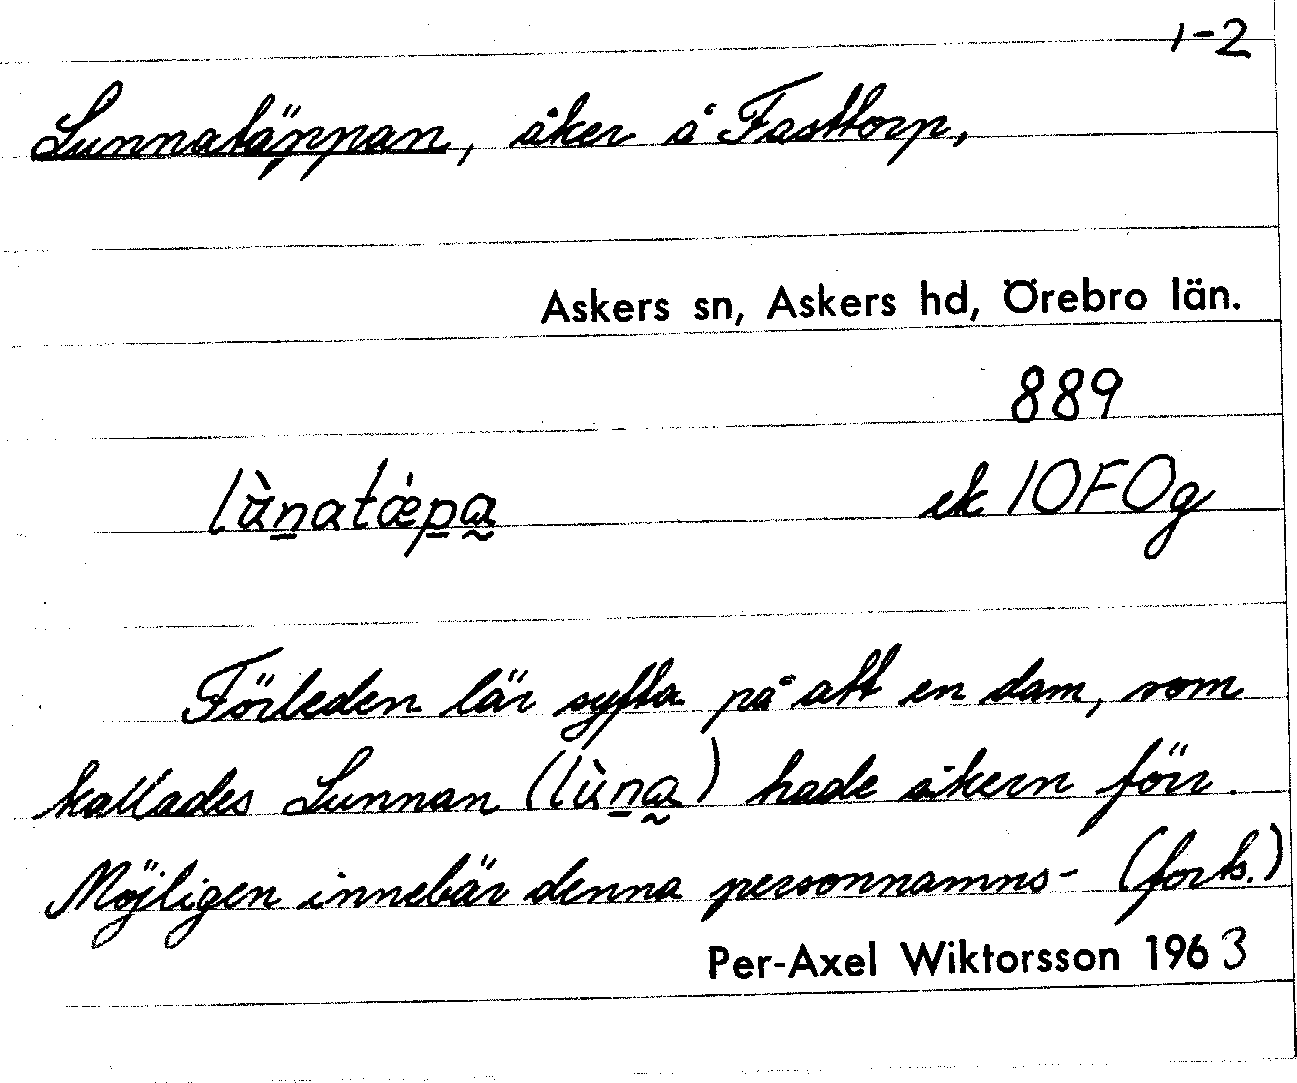 1-2
Lunnatäppan, åker å Fasttorp,
Askers sn, Askers hd, Örebro län.
889
lùn̲atǽp̲a̰ ek 10F0g
Förleden lär syfta på att en dam, som
kallades Lunnan (lùn̲a̰) hade åkern förr.
Möjligen innebär denna personnamns- (forts.)
Per-Axel Wiktorsson 1963